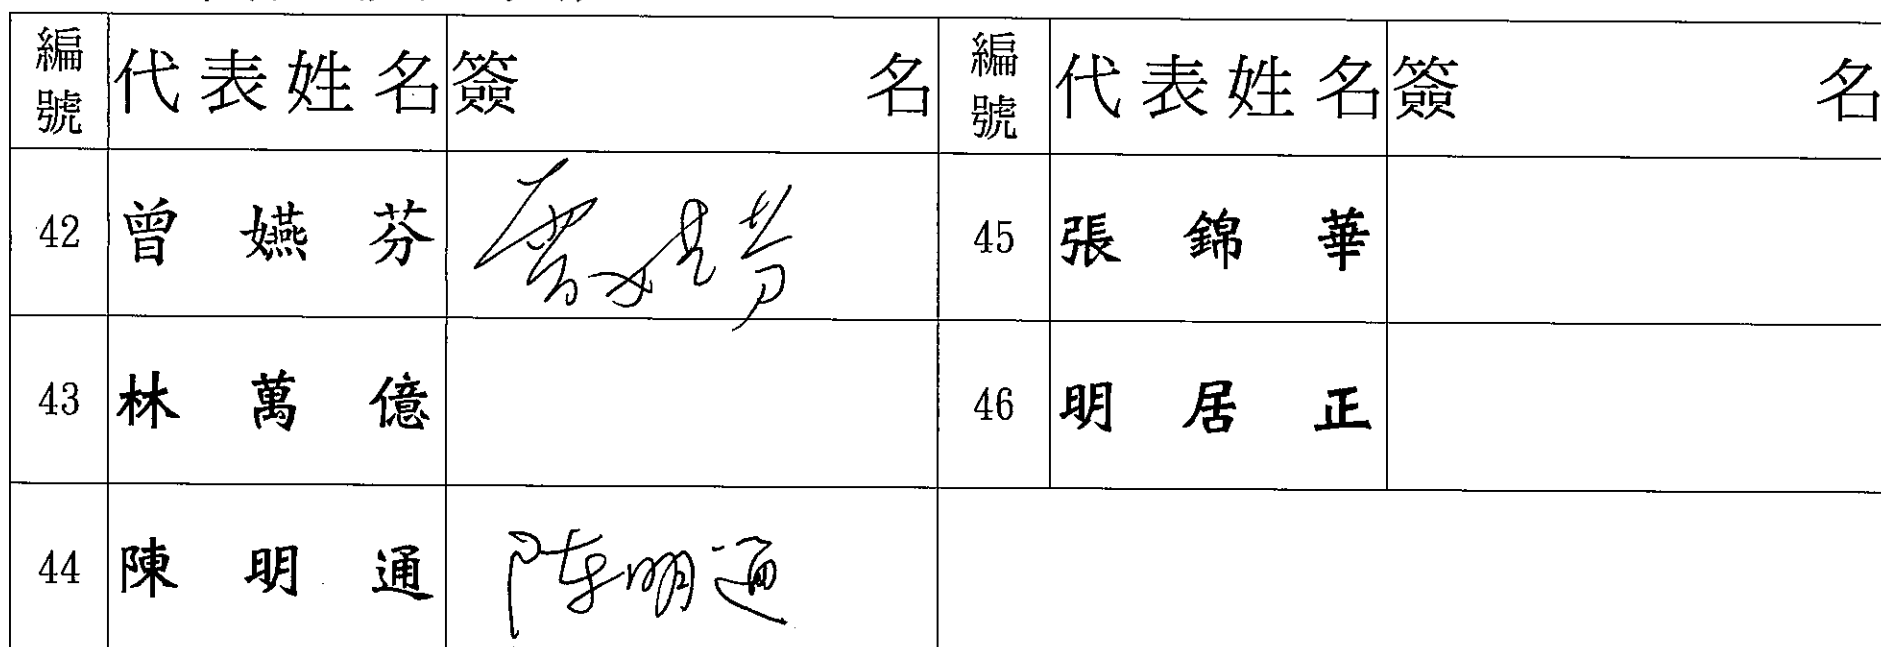 編號 代表姓名 簽名 編號 代表姓名 簽名
42 曾嬿芬 45 張錦華
43 林萬億 46 明居正
44 陳明通 陳明通